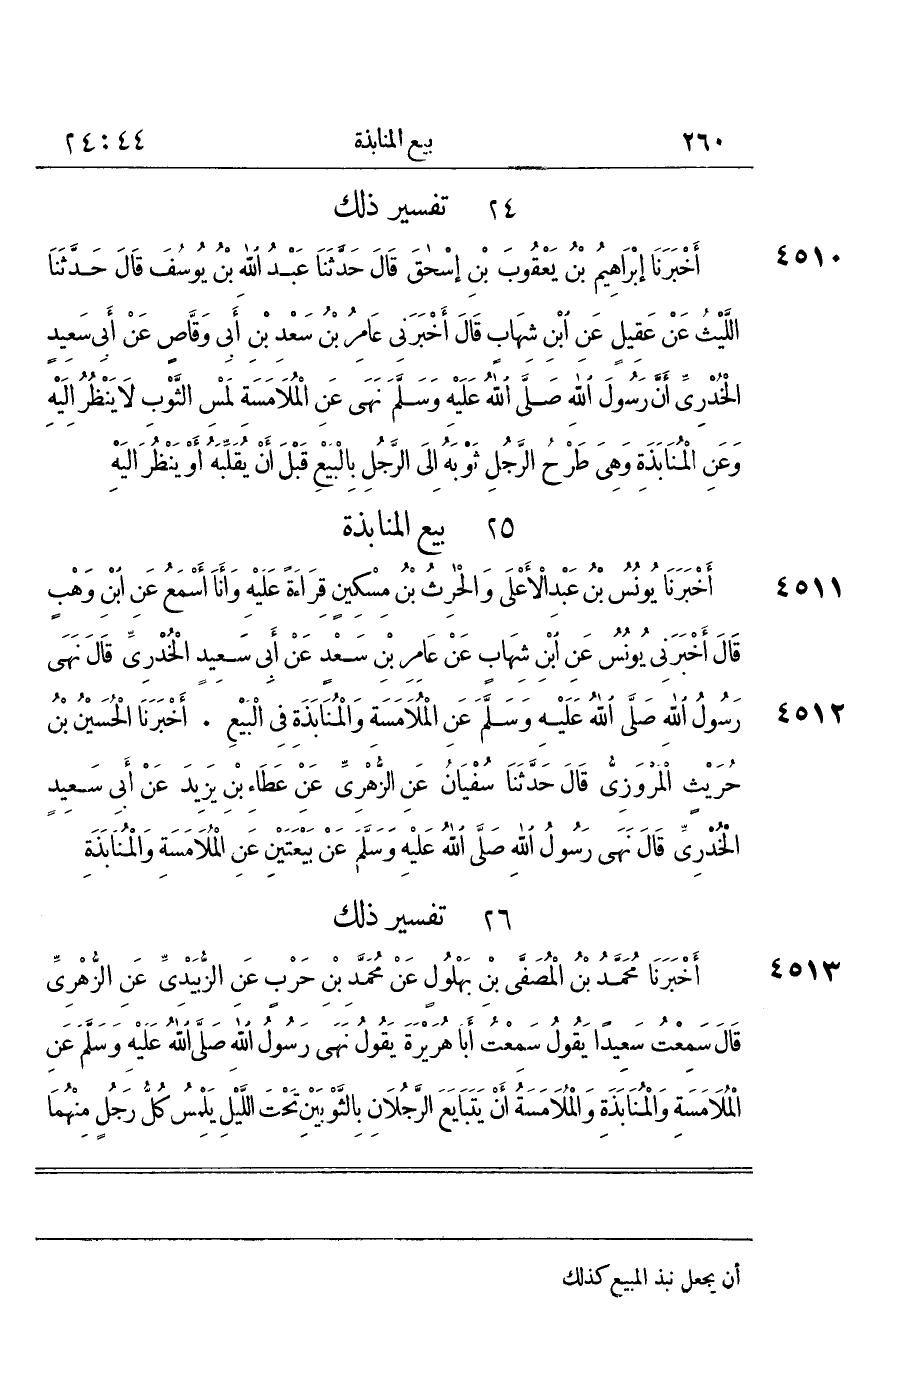 ٢٦٠ بيع المنابذة ٤٤ : ٢٤
٢٤ تفسير ذلك
٤٥١٠ أَخْبَرَنَا إِبْرَاهِيمُ بْنُ يَعْقُوبَ بْنِ إِسْحٰقَ قَالَ حَدَّثَنَا عَبْدُ اللهِ بْنُ يُوسُفَ قَالَ حَدَّثَنَا
اللَّيْثُ عَنْ عُقَيْلٍ عَنِ ابْنِ شِهَابٍ قَالَ أَخْبَرَنِى عَامِرُ بْنُ سَعْدِ بْنِ أَبِى وَقَّاصٍ عَنْ أَبِى سَعِيدٍ
الْخُدْرِىِّ أَنَّ رَسُولَ اللهِ صَلَّى اللهُ عَلَيْهِ وَسَلَّمَ نَهَى عَنِ الْمُلَامَسَةِ لَمْسِ الثَّوْبِ لَا يَنْظُرُ إِلَيْهِ
وَعَنِ الْمُنَابَذَةِ وَهِىَ طَرْحُ الرَّجُلِ ثَوْبَهُ إِلَى الرَّجُلِ بِالْبَيْعِ قَبْلَ أَنْ يُقَلِّبَهُ أَوْ يَنْظُرَ إِلَيْهِ
٢٥ بيع المنابذة
٤٥١١ أَخْبَرَنَا يُونُسُ بْنُ عَبْدِ الْأَعْلَى وَالْحٰرِثُ بْنُ مِسْكِينٍ قِرَاءَةً عَلَيْهِ وَأَنَا أَسْمَعُ عَنِ ابْنِ وَهْبٍ
قَالَ أَخْبَرَنِى يُونُسُ عَنِ ابْنِ شِهَابٍ عَنْ عَامِرِ بْنِ سَعْدٍ عَنْ أَبِى سَعِيدٍ الْخُدْرِىِّ قَالَ نَهَى
٤٥١٢ رَسُولُ اللهِ صَلَّى اللهُ عَلَيْهِ وَسَلَّمَ عَنِ الْمُلَامَسَةِ وَالْمُنَابَذَةِ فِى الْبَيْعِ . أَخْبَرَنَا الْحُسَيْنُ بْنُ
حُرَيْثٍ الْمَرْوَزِىُّ قَالَ حَدَّثَنَا سُفْيَانُ عَنِ الزُّهْرِىِّ عَنْ عَطَاءِ بْنِ يَزِيدَ عَنْ أَبِى سَعِيدٍ
الْخُدْرِىِّ قَالَ نَهَى رَسُولُ اللهِ صَلَّى اللهُ عَلَيْهِ وَسَلَّمَ عَنْ بَيْعَتَيْنِ عَنِ الْمُلَامَسَةِ وَالْمُنَابَذَةِ
٢٦ تفسير ذلك
٤٥١٣ أَخْبَرَنَا مُحَمَّدُ بْنُ الْمُصَفَّى بْنِ بَهْلُولٍ عَنْ مُحَمَّدِ بْنِ حَرْبٍ عَنِ الزُّبَيْدِىِّ عَنِ الزُّهْرِىِّ
قَالَ سَمِعْتُ سَعِيدًا يَقُولُ سَمِعْتُ أَبَا هُرَيْرَةَ يَقُولُ نَهَى رَسُولُ اللهِ صَلَّى اللهُ عَلَيْهِ وَسَلَّمَ عَنِ
الْمُلَامَسَةِ وَالْمُنَابَذَةِ وَالْمُلَامَسَةُ أَنْ يَتَبَايَعَ الرَّجُلَانِ بِالثَّوْبَيْنِ تَحْتَ اللَّيْلِ يَلْمِسُ كُلُّ رَجُلٍ مِنْهُمَا
أن يجعل نبذ المبيع كذلك